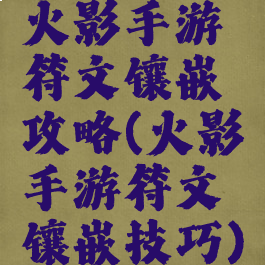 火影手游
符文镶嵌
攻略(火影
手游符文
镶嵌技巧)